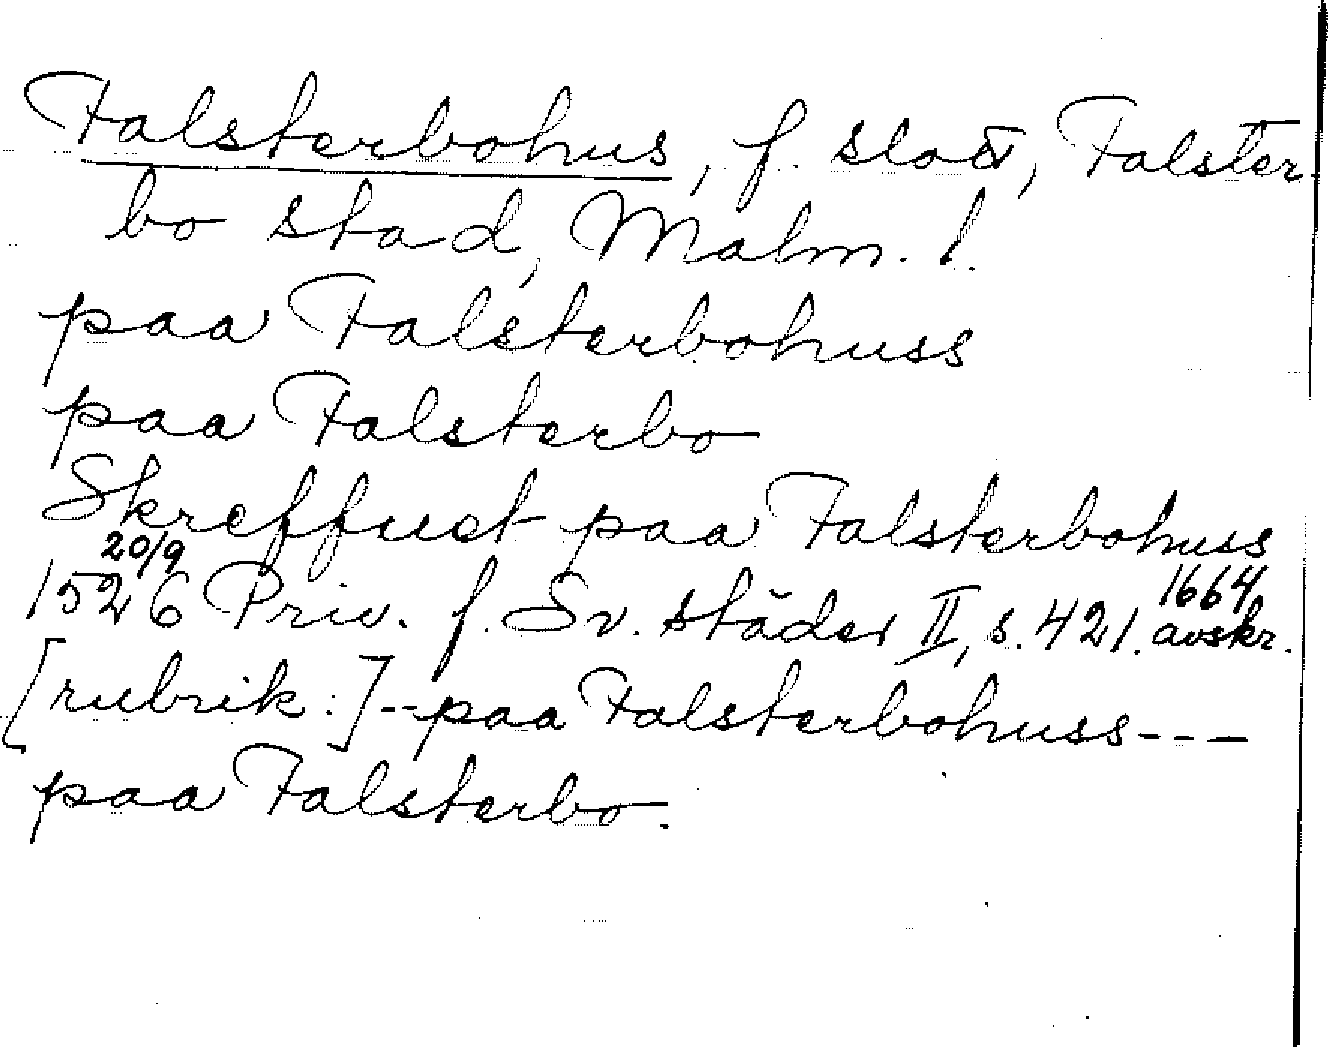 Falsterbohus, f. slott, Falster-
bo stad, Malm. l.
paa Falsterbohuss
paa Falsterbo
Skreffuet paa Falsterbohuss
20/9 1526 Priv. f. Sv. städer II, s. 421. 1664 avskr.
[rubrik:]--paa Falsterbohuss---
paa Falsterbo.